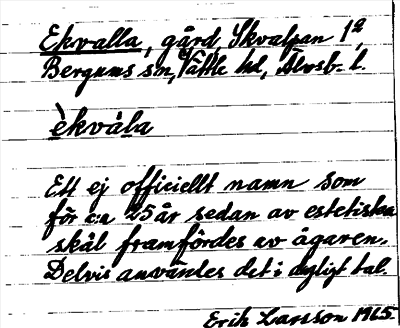 Ekvalla, gård, Skvalpan 1ª,
Bergums sn, Vättle hd, Älvsb. l.
èkvàla
Ett ej officiellt namn som
för ca 25 år sedan av estetiska
skäl framfördes av ägaren.
Delvis användes det i dagligt tal.
Erik Larsson 1965.